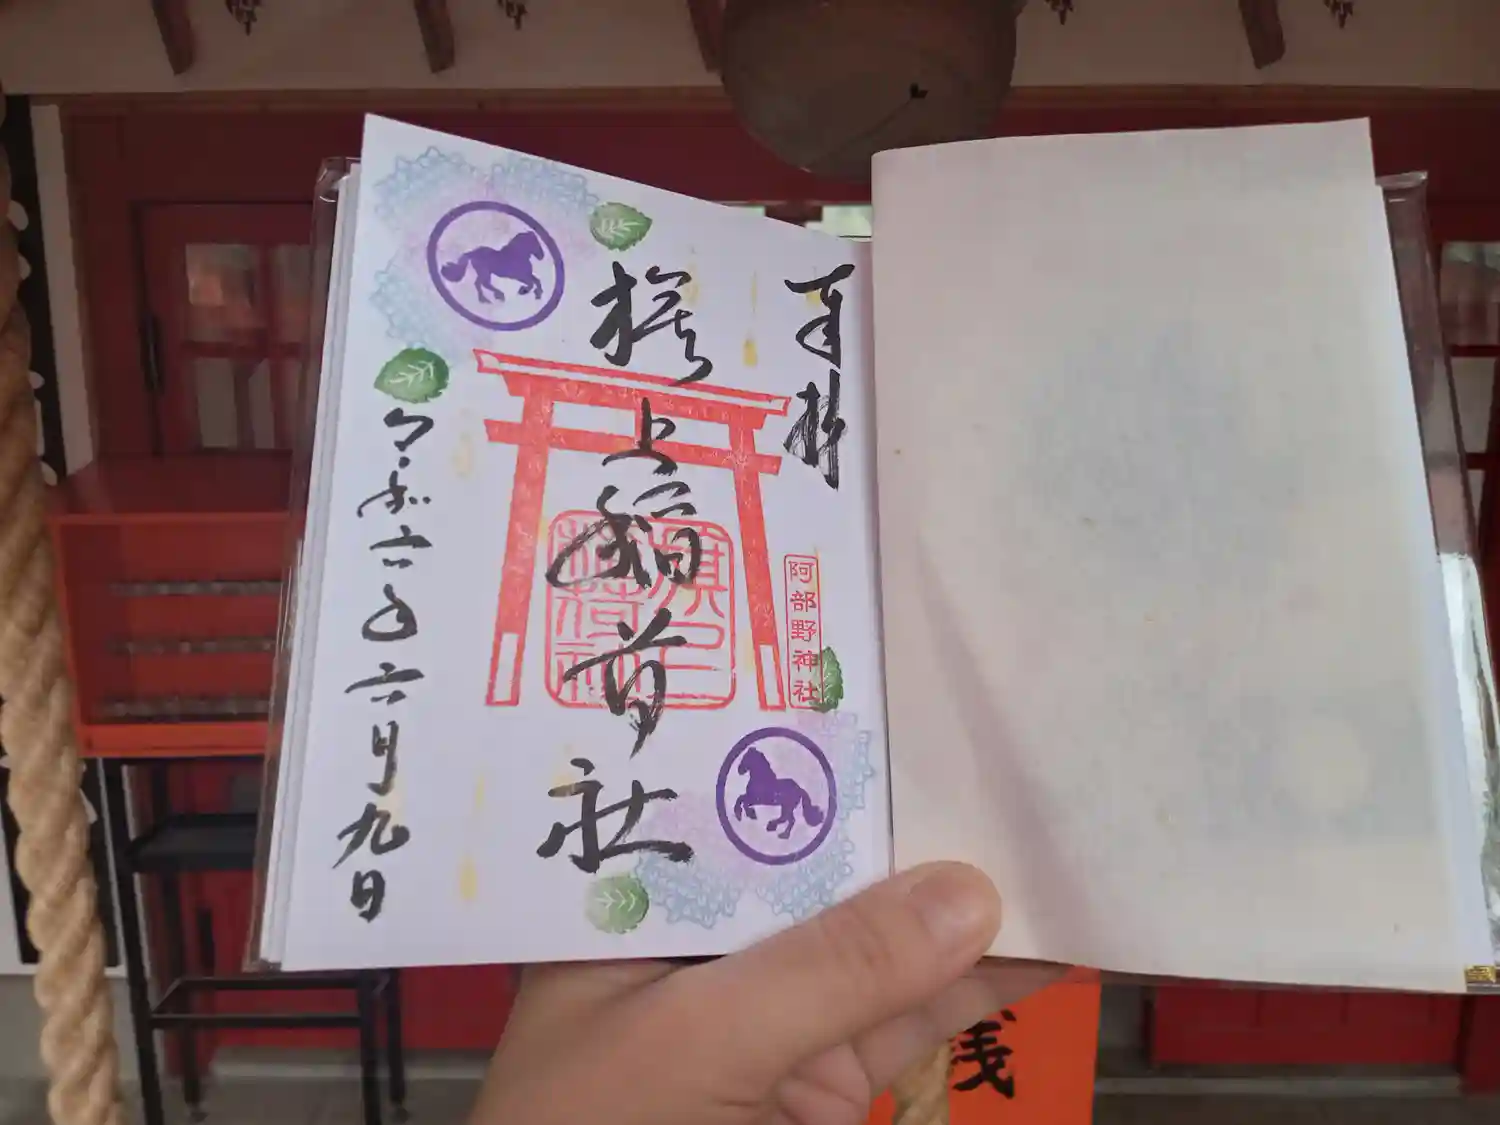 奉拝
旗上稲荷社
旗上
稲荷社
阿部野神社
令和六年六月九日
銭